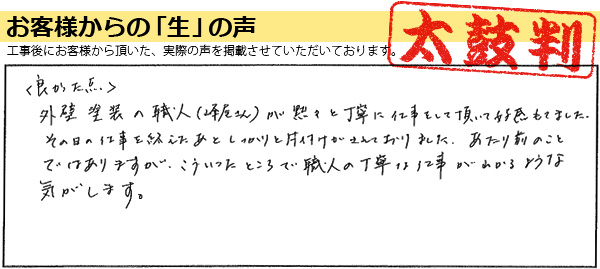 お客様からの「生」の声
太鼓判
工事後にお客様から頂いた、実際の声を掲載させていただいております。
〈良かった点〉
外壁塗装の職人(峰尾さん)が黙々と丁寧に仕事をして頂いて好感もてました。
その日の仕事を終えたあとしっかりと片付けがされておりました。あたり前のこと
ではありますが、こういったところで職人の丁寧な仕事がわかるような
気がします。